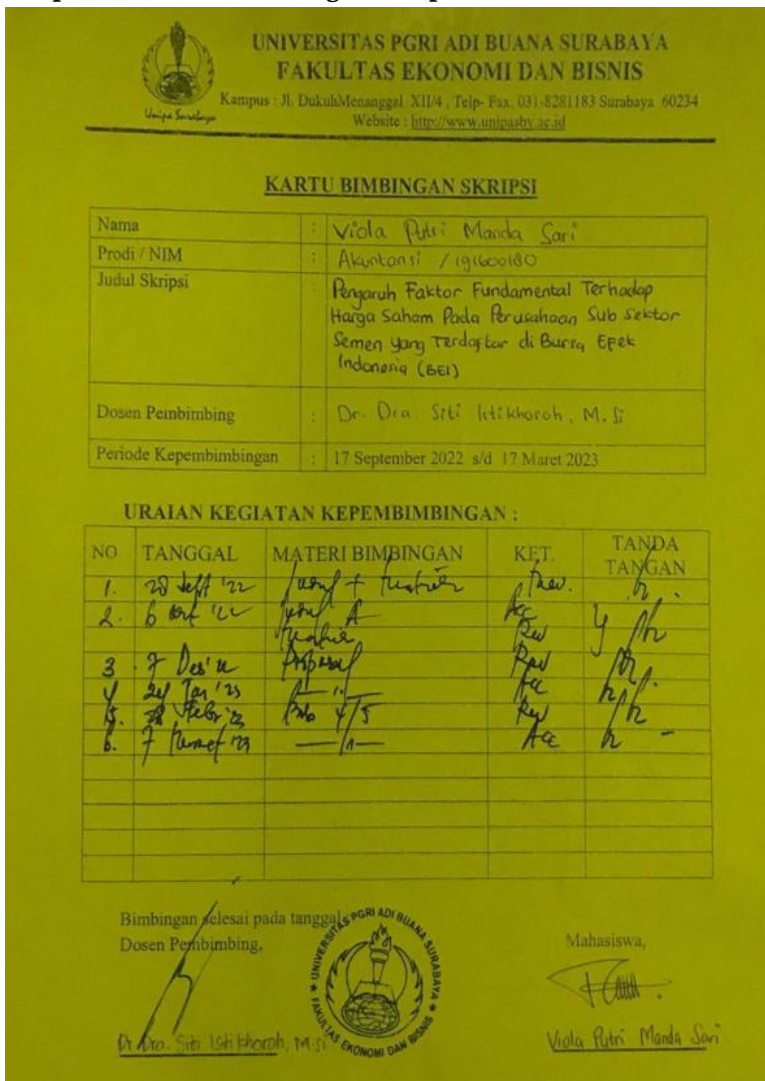 UNIVERSITAS PGRI ADI BUANA SURABAYA
FAKULTAS EKONOMI DAN BISNIS
Kampus : Jl. DukuhMenanggal XII/4 , Telp- Fax. 031-8281183 Surabaya 60234
Website : http://www.unipasby.ac.id
Unipa Surabaya
KARTU BIMBINGAN SKRIPSI
Nama : Viola Putri Manda Sari
Prodi / NIM : Akuntansi / 191600180
Judul Skripsi : Pengaruh Faktor Fundamental Terhadap
Harga Saham Pada Perusahaan Sub Sektor
Semen yang Terdaftar di Bursa Efek
Indonesia (BEI)
Dosen Pembimbing : Dr. Dra. Siti Istikhoroh, M.Si
Periode Kepembimbingan : 17 September 2022 s/d 17 Maret 2023
URAIAN KEGIATAN KEPEMBIMBINGAN :
NO TANGGAL MATERI BIMBINGAN KET. TANDA TANGAN
1. 28 Sept '22 +
2. 6 '22 Acc
Rev
3 7 Des' Proposal Rev
4 24 Jan '23 — " — Acc
5. 28 Febr '23 Bab 4/5 Rev
6. 7 '23 — " — Acc
Bimbingan selesai pada tanggal
Dosen Pembimbing,
Mahasiswa,
UNIVERSITAS PGRI ADI BUANA SURABAYA
FAKULTAS EKONOMI DAN BISNIS
Dr. Dra. Siti Istikhoroh, M.Si
Viola Putri Manda Sari